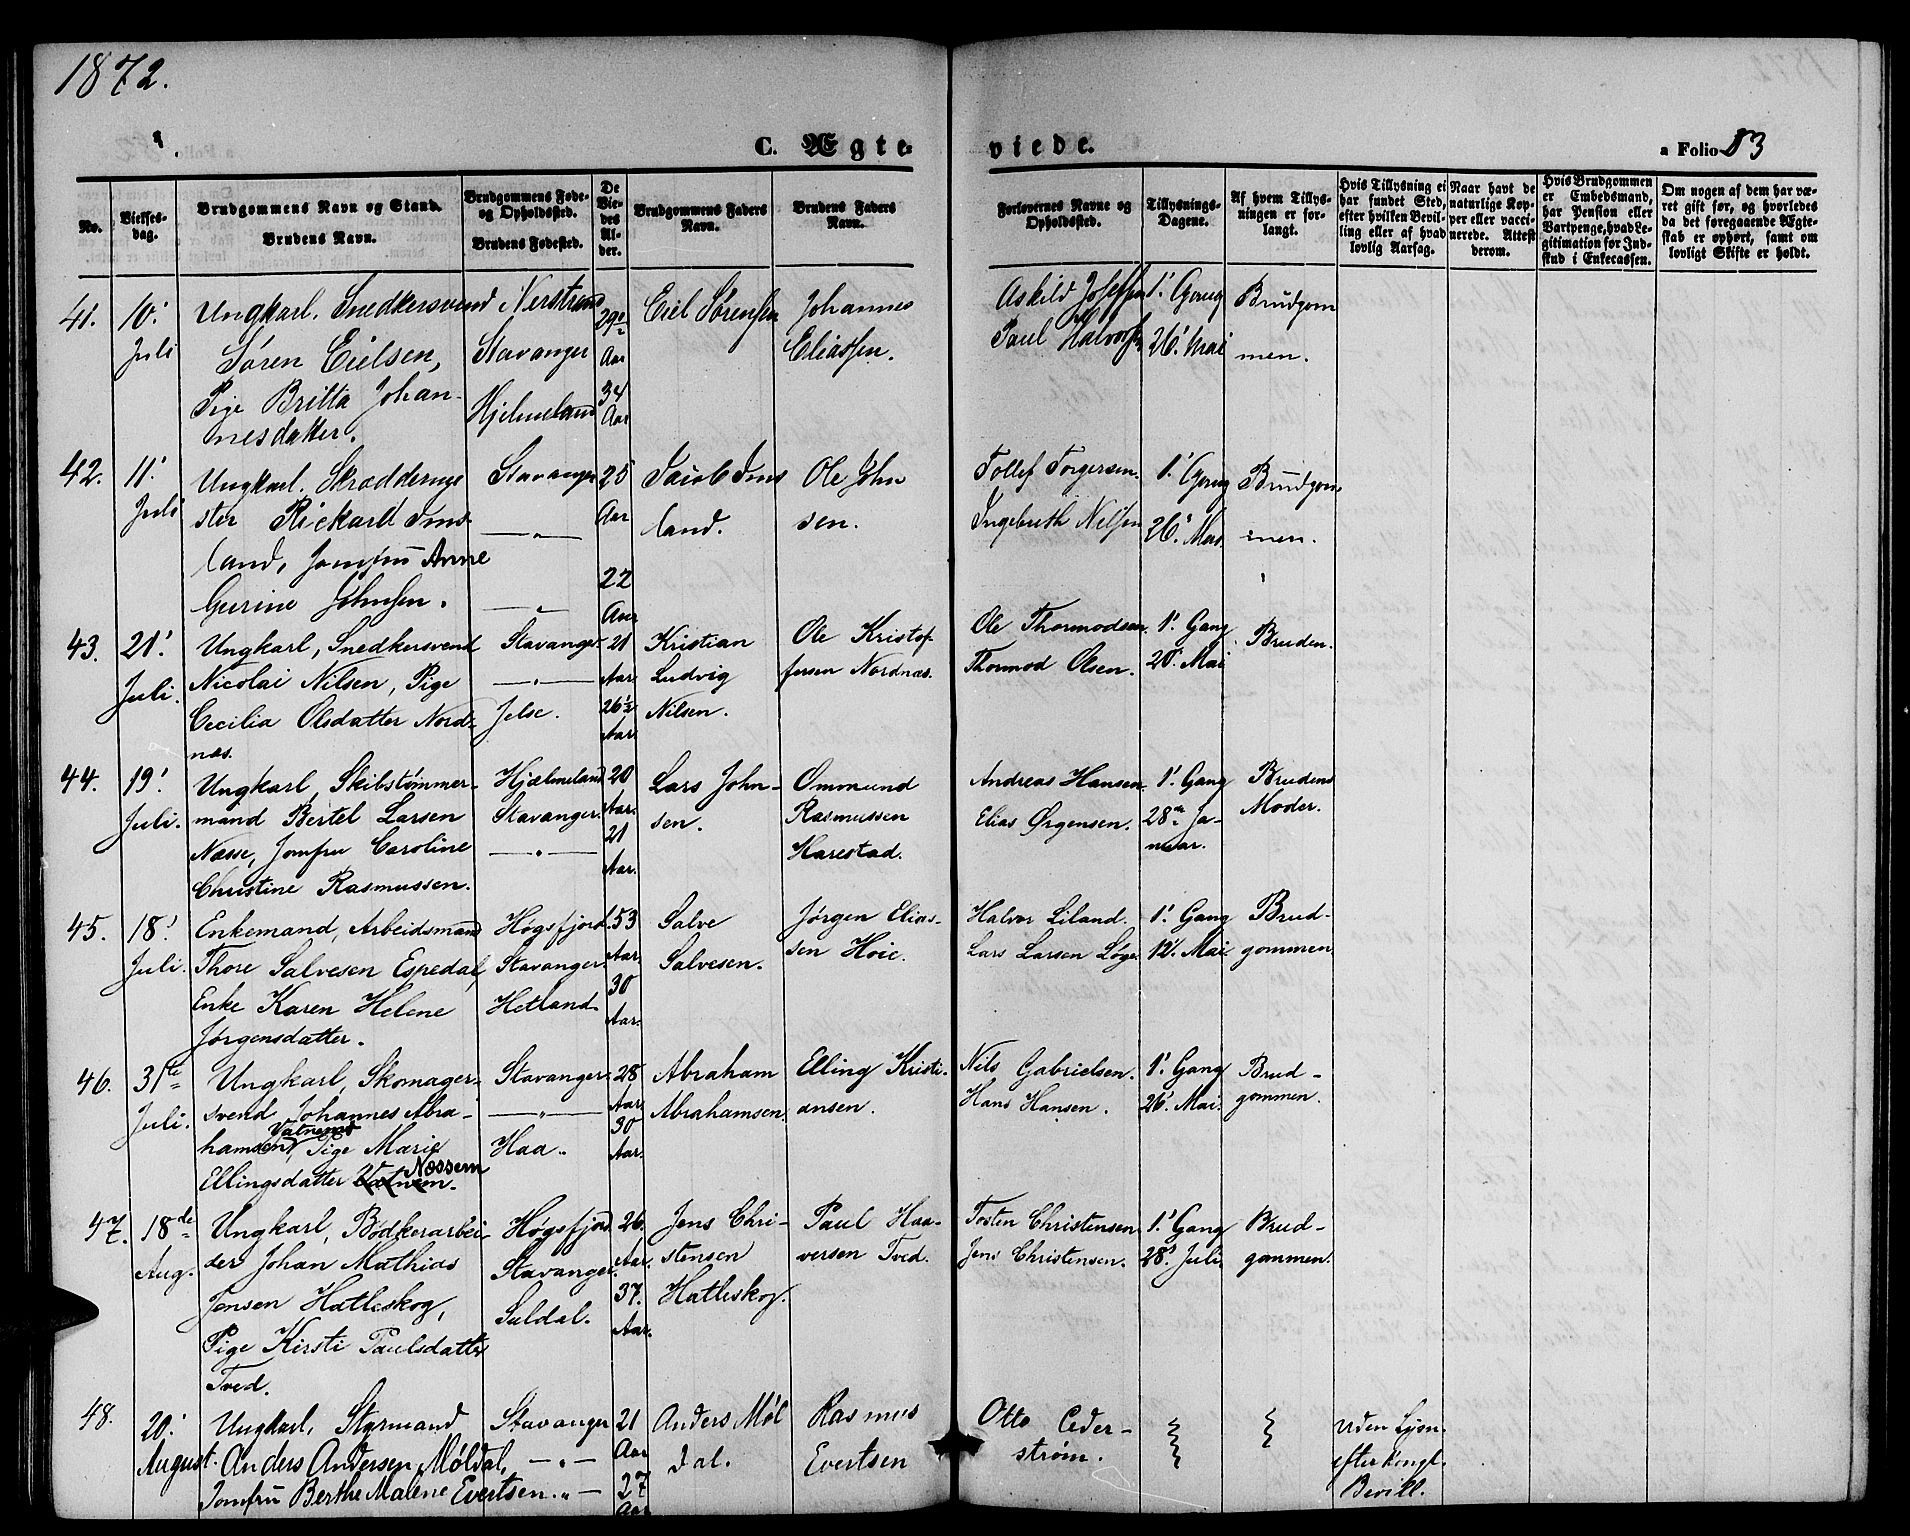 1872.
C. Ægteviede.
a Folio 83
No.
Vielsesdag.
Brudgommens Navn og Stand.
Brudens Navn.
Brudgommens Føde- og Opholdssted.
Brudens Fødested.
De Viedes Alder.
Brudgommens Faders Navn.
Brudens Faders Navn.
Forlovernes Navne og Opholdssted.
Tillysnings-Dagene.
Af hvem Tillysningen er forlangt.
Hvis Tillysning ei har fundet Sted, efter hvilken Bevilling eller af hvad lovlig Aarsag.
Naar havt de naturlige Kopper eller vaccinerede. Attest derom.
Hvis Brudgommen er Embedsmand, har Pension eller Vartpenge, hvad Legitimation for Indskud i Enkecassen.
Om nogen af dem har været gift før, og hvorledes da det foregaaende Ægteskab er ophørt, samt om lovligt Skifte er holdt.
41. 10' Juli
Ungkarl. Snedkersvend
Søren Eielsen,
Pige Britta Johan-
nesdatter.
Nerstrand
Stavanger
Hjelmeland
29 Aar
34 Aar
Eiel Sørensen
Johannes
Eliassen.
Askild Josefsen
Paul Halvorsen
1' Gang
26' Mai
Brudgom
men.
42. 11' Juli
Ungkarl. Skrædderme
ster Rickard Ims-
land, Jomfru Anne
Gurine Johnsen.
Stavanger
— „ —
— „ —
25 Aar
22 Aar
Jacob Ims
land.
Ole John
sen.
Tollef Torgersen.
Ingebreth Nilsen
1' Gang
26' Mai.
Brudgom
men.
43. 21' Juli.
Ungkarl, Snedkersvend
Nicolai Nilsen, Pige
Cecilia Olsdatter Nord-
næs.
Stavanger.
— „ —
Jelse.
21 Aar.
26½ Aar.
Kristian
Ludvig
Nilsen.
Ole Kristof
fersen Nordnæs.
Ole Thormodsen.
Thormod Olsen.
1' Gang
20' Mai
Bruden.
44. 19' Juli.
Ungkarl, Skibstømmer-
mand Bertel Larsen
Næsse, Jomfru Caroline
Christine Rasmussen.
Hjælmeland
Stavanger.
— „ —
20 Aar.
21 Aar.
Lars John-
sen.
Ommund
Rasmussen
Harestad.
Andreas Hansen.
Elias Ørgensen.
1' Gang
28de Ja-
nuar.
Brudens
Moder.
45. 18' Juli.
Enkemand, Arbeidsmand
Thore Salvesen Espedal,
Enke Karen Helene
Jørgensdatter.
Høgsfjord.
Stavanger.
Hetland.
53 Aar.
30 Aar.
Salve
Salvesen.
Jørgen Elias-
sen Hoie.
Halvor Liland.
Lars Larsen Løge
1' Gang
12' Mai
Brud-
gommen.
46. 31te Juli.
Ungkarl, Skomager-
svend Johannes Abra-
hamsen Vatnem, Pige Marie
Ellingsdatter Vatnem Nossem
Stavanger.
— „ —
Haa.
28 Aar.
30 Aar.
Abraham
Abrahamsen.
Elling Kristi-
ansen.
Nils Gabrielsen.
Hans Hansen.
1' Gang
26' Mai.
Brud-
gommen.
47. 18de Aug.
Ungkarl, Bødkerarbei-
der Johan Mathias
Jensen Hatleskog,
Pige Kirsti Paulsdatter
Tved.
Høgsfjord
Stavanger.
Suldal.
26. Aar.
37. Aar.
Jens Chri-
stensen
Hatleskog.
Paul Haa-
versen Tved.
Tosten Christensen
Jens Christensen.
1' Gang
28' Juli
Brud-
gommen.
48. 20' August.
Ungkarl, Styrmand
Anders Andersen Møldal,
Jomfru Berthe Malene Evertsen.
Stavanger
— „ —
„ —
21 Aar
27 Aar
Anders Møl
dal.
Rasmus
Evertsen
Otto Ceder-
strøm.
uden Lysn.
efter Kongl.
Bevill.